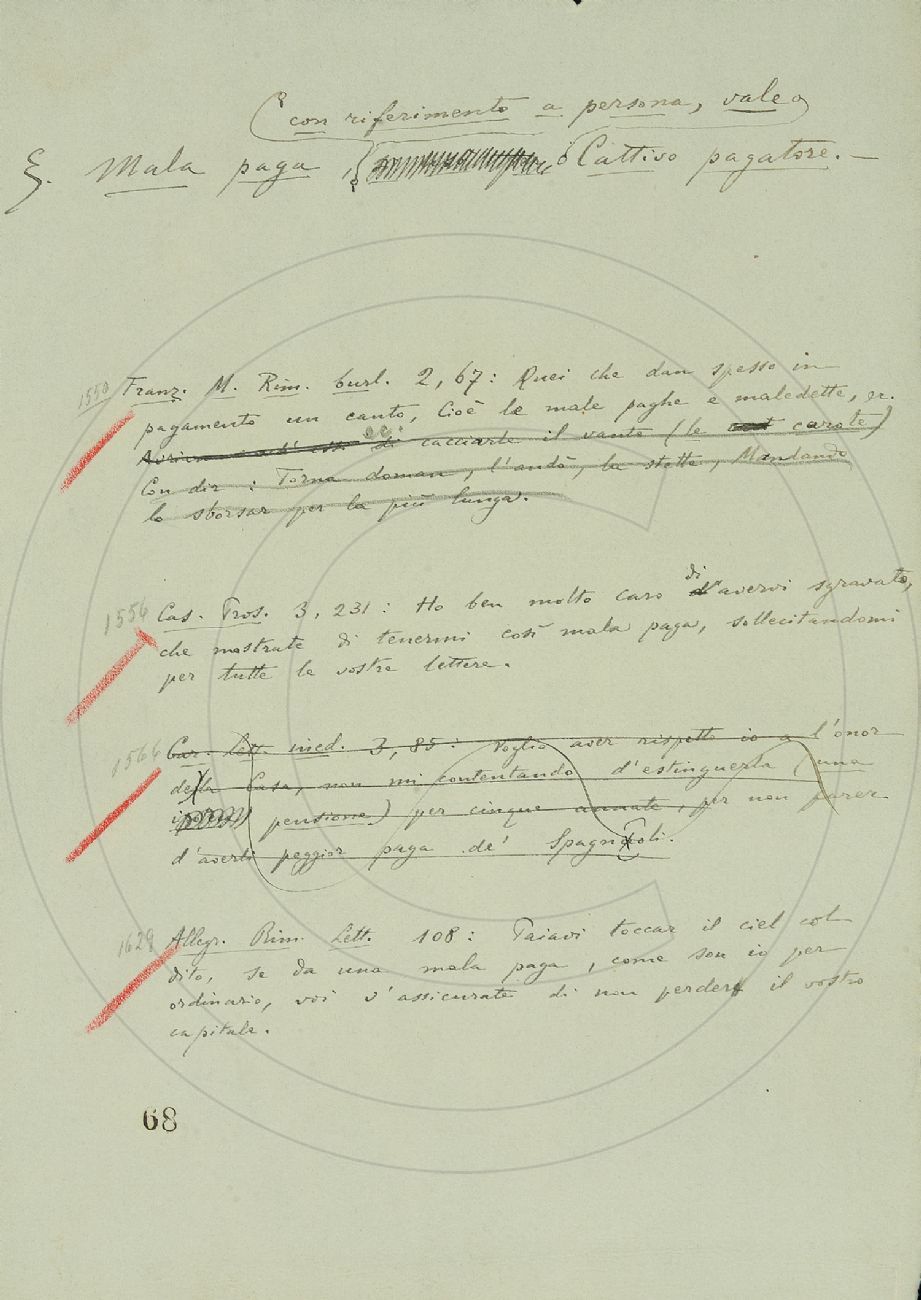 Con riferimento a persona, vale
§. Mala paga, Cattivo pagatore. —
1550 Franz. M. Rim. burl. 2, 67: Quei che dan spesso in
pagamento un canto, Cioè le male paghe e maledette, ec.
ec. di cacciarle il vanto (le carote)
Con dir: Torna doman, l'andò, la stette, Mandando
lo sborsar per la più lunga.
1556 Cas. Pros. 3, 231: Ho ben molto caro di avervi sgravato,
che mostrate di tenermi così mala paga, sollecitandomi
per tutte le vostre lettere.
1566 Car. Lett. ined. 3, 85: Voglio aver rispetto io a l'onor
della Casa, non mi contentando d'estinguerla (una
pensione) per cinque annate, per non parer
d'averli peggior paga de' Spagnoli.
1629 Allegr. Rim. Lett. 108: Paiavi toccar il ciel col
dito, se da una mala paga, come son io per
ordinario, voi v'assicurate di non perdere il vostro
capitale.
68